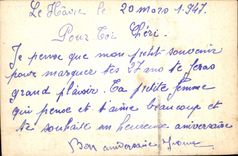 Le Hâvre le 20 mars 1947.
Pour Toi Chéri.
Je pense que mon petit souvenir
pour marquer tes 27 ans te feras
grand plaisir. Ta petite femme
qui pense et t'aime beaucoup et
te souhait un heureuse anniversaire
Bon anniversaire Yvonne